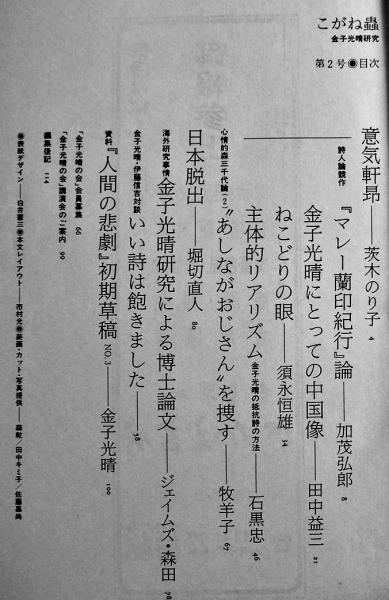 こがね蟲
金子光晴研究
第2号◉目次
意気軒昂――茨木のり子 4
詩人論競作
『マレー蘭印紀行』論――加茂弘郎 8
金子光晴にとっての中国像――田中益三 21
ねこどりの眼――須永恒雄 34
主体的リアリズム 金子光晴の抵抗詩の方法――石黒忠 46
心情的森三千代論(2) “あしながおじさん”を捜す――牧羊子 67
日本脱出――堀切直人 80
海外研究事情 金子光晴研究による博士論文――ジェイムズ・森田 78
金子光晴・伊藤信吉対談 いい詩は飽きました――58
資料『人間の悲劇』初期草稿 NO.3――金子光晴 100
「金子光晴の会」会員募集 66
「金子光晴の会」講演会のご案内 99
編集後記 114
◉表紙デザイン――臼井新三◉本文レイアウト――市村光◉装画・カット・写真提供――森乾/田中キミ子/佐藤嘉尚